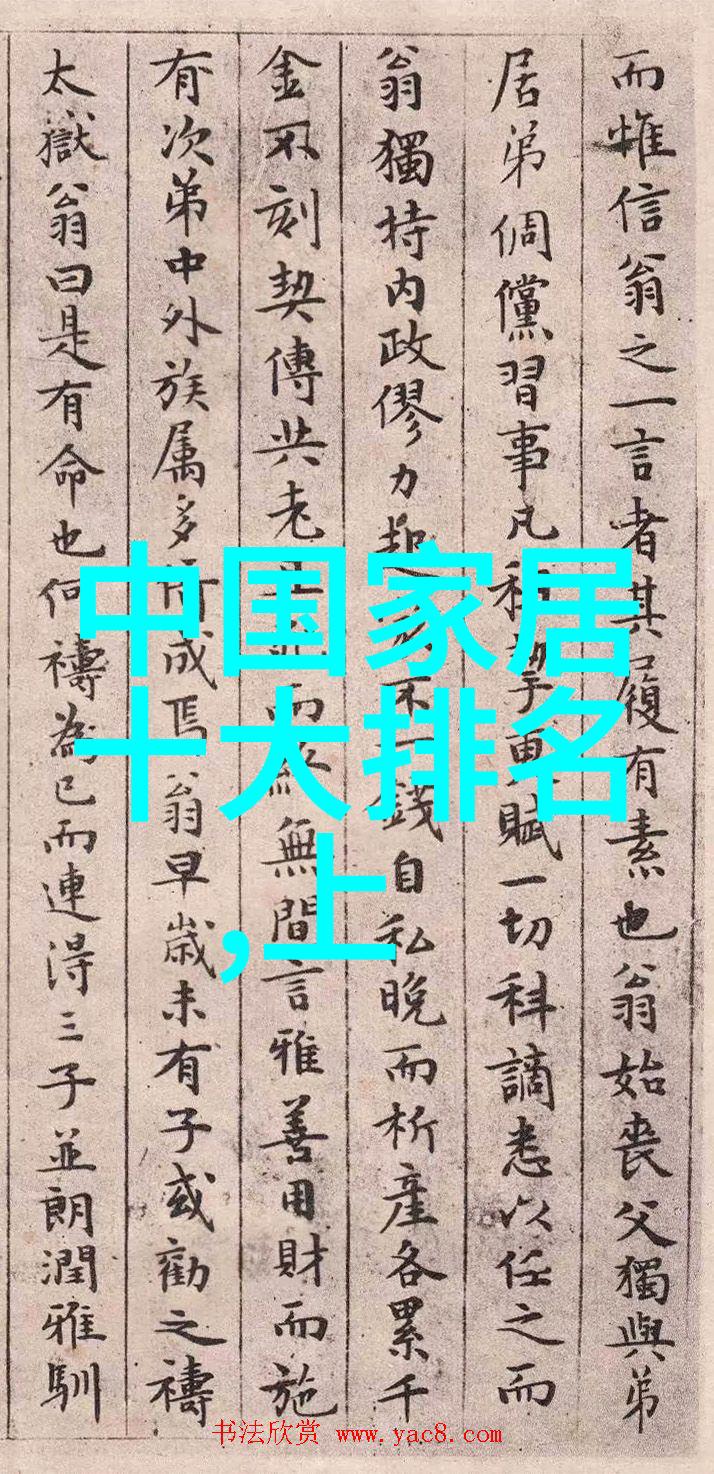 而惟信翁之一言者其履有素也翁始丧父獨與弟
居弟倜儻習事凡賦一切科謫悉以任之而
翁獨持内政僇力起不一錢自私晚而析産各累千
金不刻契傳共老而無間言雅善用財而施
有次弟中外族属多所成焉翁早歳未有子或勸之禱
太嶽翁曰是有命也何禱為已而連得三子並朗潤雅馴
中国家居
十大排名
,上
书法欣赏 www.yac8.com